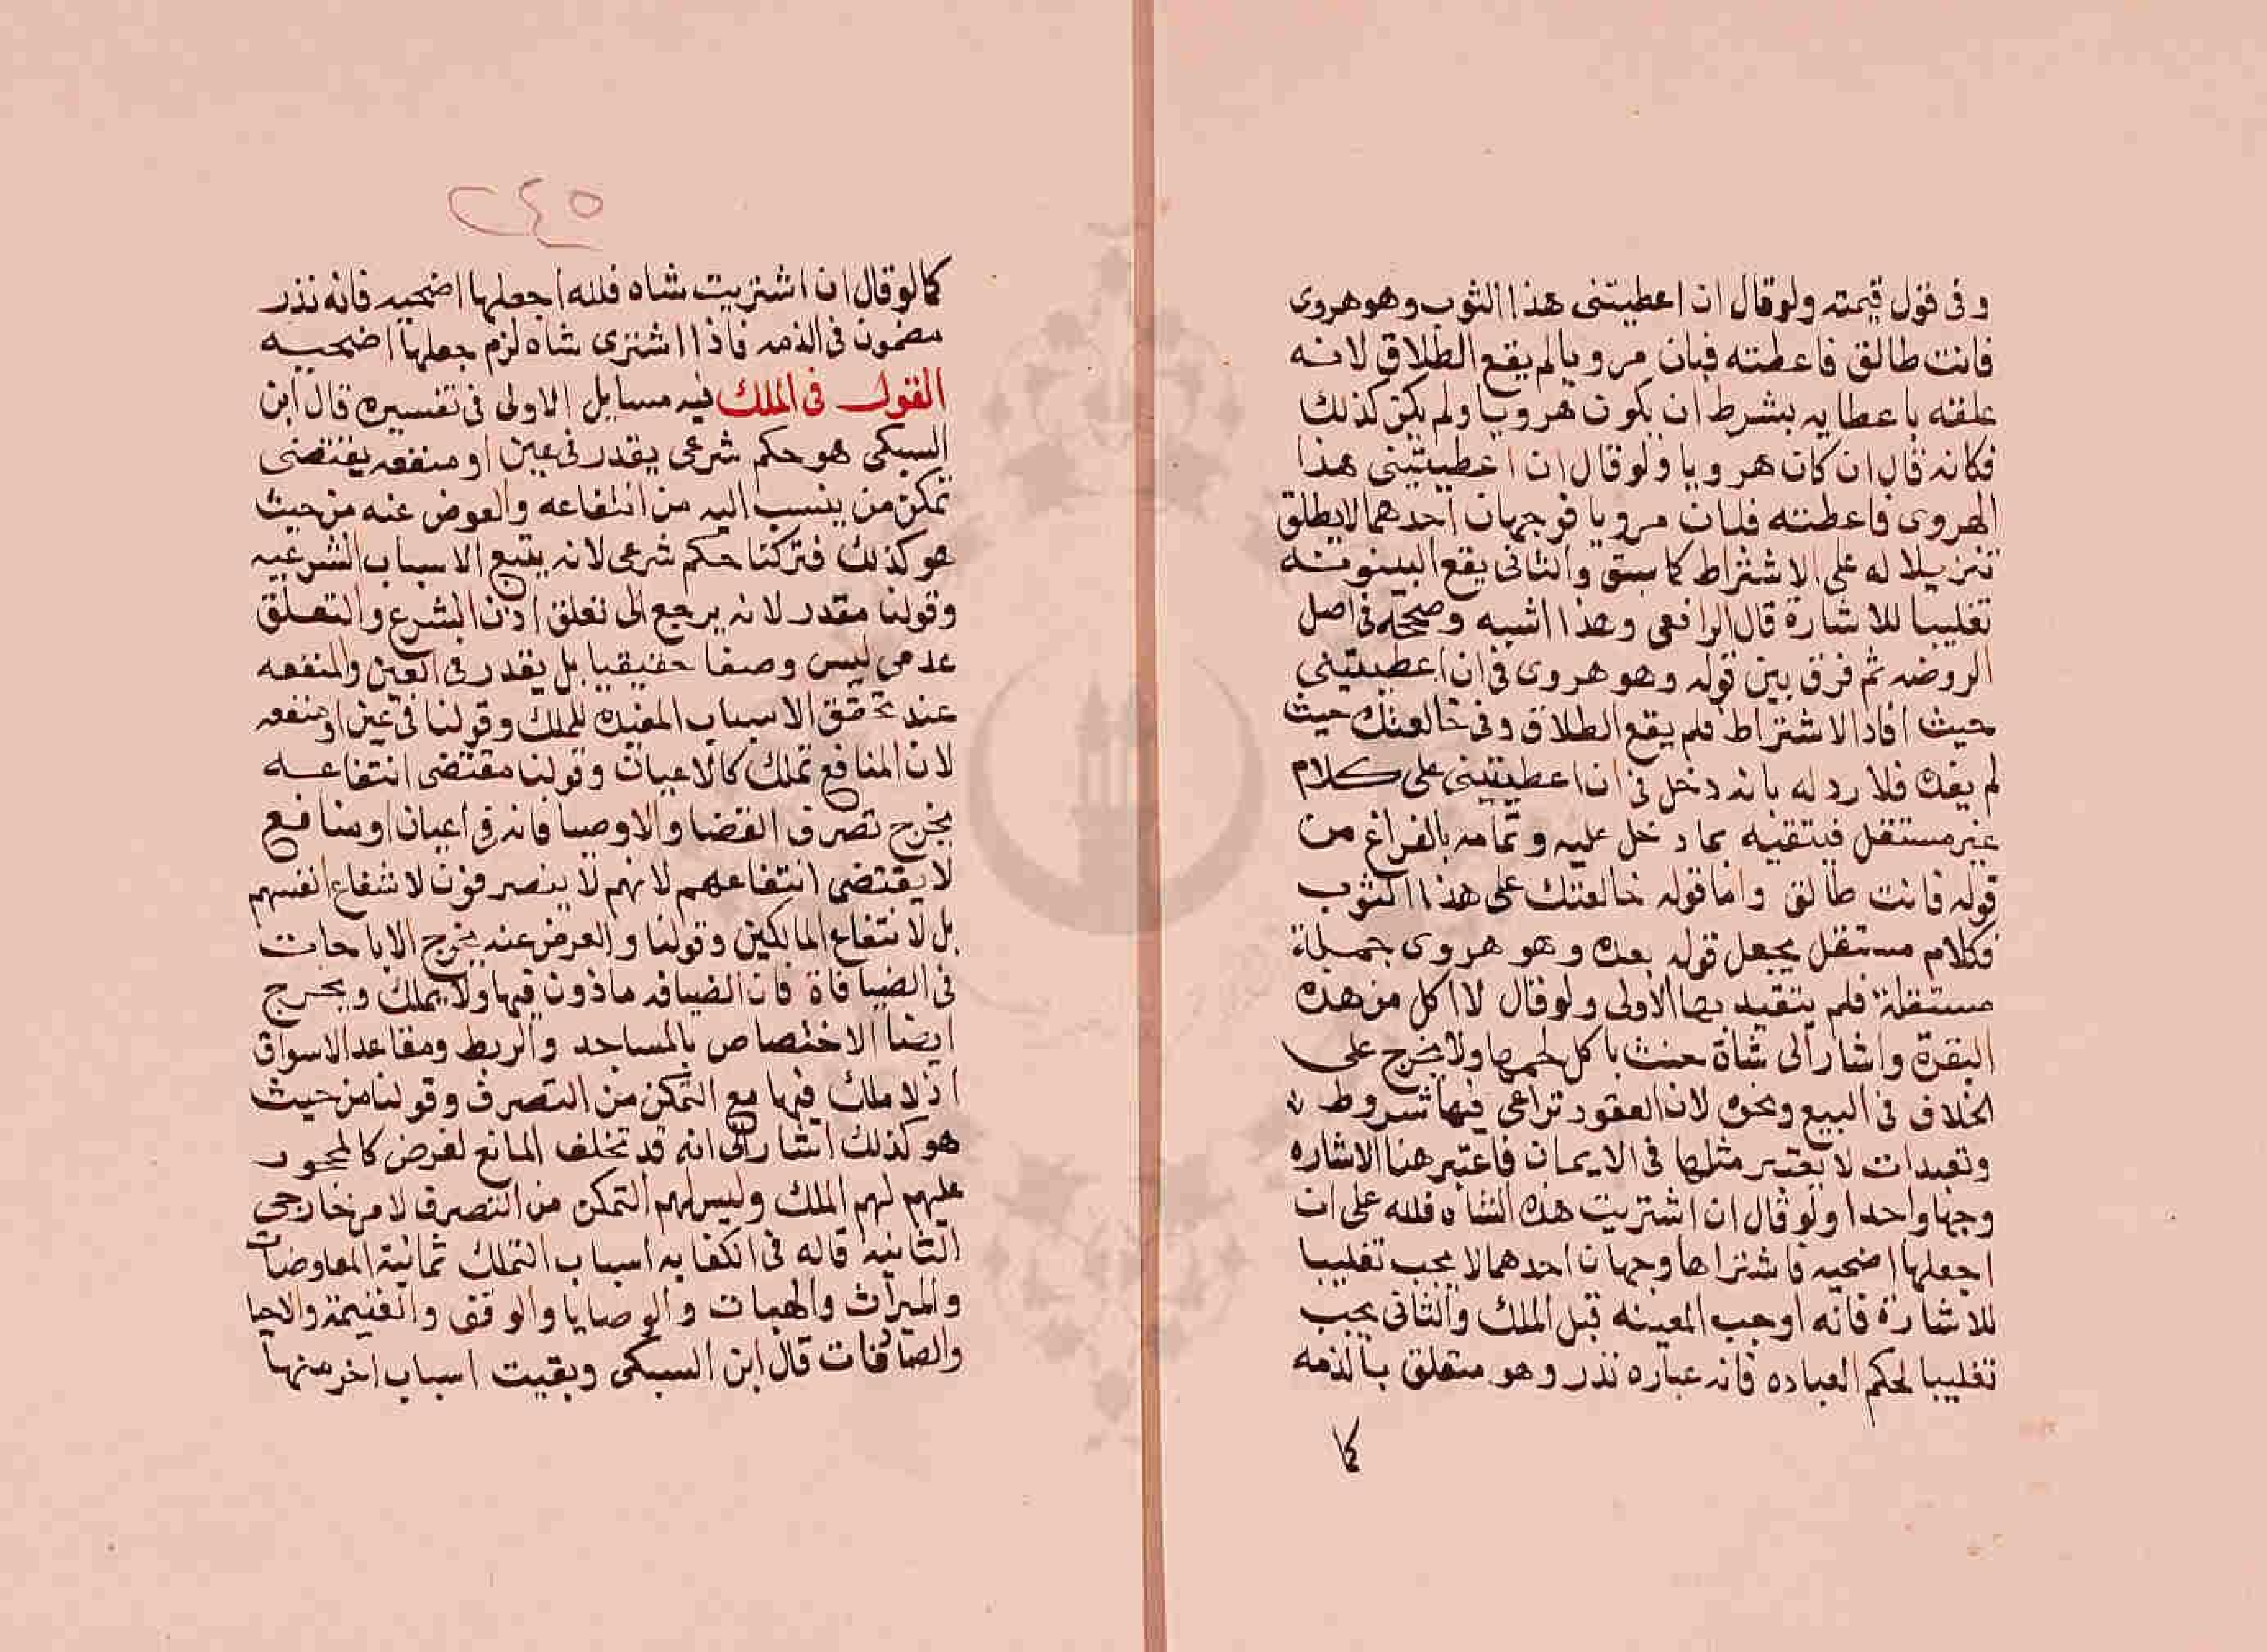 وفى قول قيمته ولو قال ان اعطيتنى هذا الثوب وهو هروى
فانت طالق فاعطته فبان مرويا لم يقع الطلاق لانه
علقه باعطايه بشرط ان يكون هرويا ولم يكن كذلك
فكانه قال ان كان هرويا ولو قال ان اعطيتينى هذا
الهروى فاعطته فبان مرويا فوجهان احدهما لا يطلق
تنزيلا له على الاشتراط كما سبق والثانى يقع البينونة
تغليبا للاشارة قال الرافعى وهذا اشبه وصححه فى اصل
الروضه ثم فرق بين قوله وهو هروى فى ان اعطيتينى
حيث افاد الاشتراط فلم يقع الطلاق وفى خالعتك حيث
لم يفده فلا رد له بانه دخل فى ان اعطيتينى على كلام
غير مستقل فيتقيد بما دخل عليه وتمامه بالفراغ من
قوله فانت طالق واما قوله خالعتك على هذا الثوب
فكلام مستقل يجعل قوله بعده وهو هروى جملة
مستقلة فلم يتقيد بها الاولى ولو قال لا اكل من هذه
البقرة واشار الى شاة حنث باكل لحمها ولا يخرج على
الخلاف فى البيع ونحوه لان العقود تراعى فيها شروط
وتعبدات لا يعتبر مثلها فى الايمان فاعتبر هنا الاشاره
وجها واحدا ولو قال ان اشتريت هذه الشاه فلله على ان
اجعلها اضحيه فاشتراها وجهان احدهما لا يجب تغليبا
للاشارة فانه اوجب المعينه قبل الملك والثانى يجب
تغليبا لحكم العباده فانه عباره نذر وهو متعلق بالذمه
كما
٢٤٥
كما لو قال ان اشتريت شاه فلله اجعلها اضحيه فانه نذر
مضمون فى الذمه فاذا اشترى شاه لزم جعلها اضحيه
القول فى الملك فيه مسايل الاولى فى تفسيره قال ابن
السبكى هو حكم شرعى يقدر فى عين او منفعه يقتضى
تمكن من ينسب اليه من انتفاعه والعوض عنه من حيث
هو كذلك فتركنا حكم شرعى لانه يتبع الاسباب الشرعيه
وقولنا مقدر لانه يرجع الى تعلق اذن الشرع والتعلق
عدمى ليس وصفا حقيقيا بل يقدر فى العين والمنفعه
عند تحقق الاسباب المفيده للملك وقولنا فى عين او منفعه
لان المنافع تملك كالاعيان وقولنا مقتضى انتفاعه
يخرج تصرف القضا والاوصيا فانه فى اعيان او منافع
لا يقتضى انتفاعهم لانهم لا يتصرفون لانتفاع انفسهم
بل لانتفاع المالكين وقولنا والعوض عنه يخرج الاباحات
فى الضيافاة فان الضيافه ماذون فيها ولا يملك ويخرج
ايضا الاختصاص بالمساجد والربط ومقاعد الاسواق
اذ لا ملك فيها مع التمكن من التصرف وقولنا من حيث
هو كذلك اشار الى انه قد تخلف المانع لغرض كالمحجور
عليهم لهم الملك وليس لهم التمكن من التصرف لامر خارجى
الثانيه قاله فى الكفايه اسباب التملك ثمانية المعاوضات
والميراث والهبات والوصايا والوقف والغنيمة والاحيا
والصدقات قال ابن السبكى وبقيت اسباب اخر منها